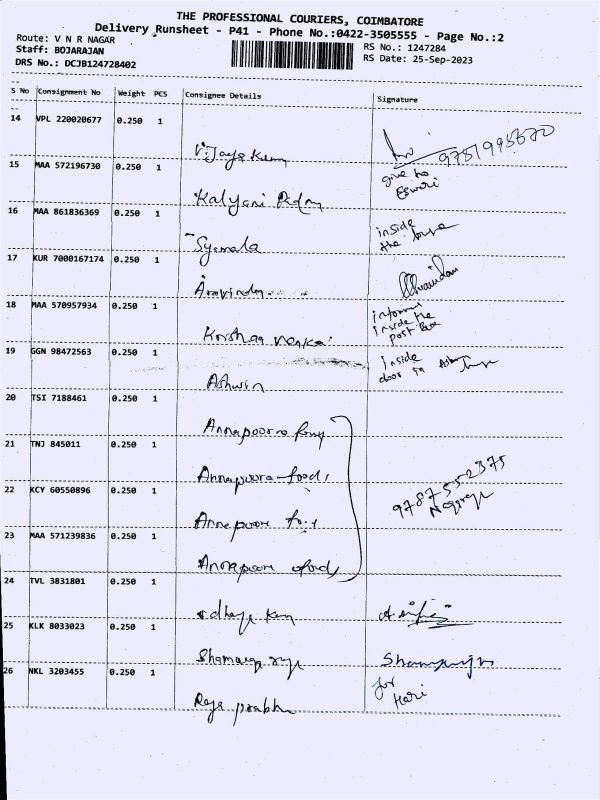 THE PROFESSIONAL COURIERS, COIMBATORE
Delivery Runsheet - P41 - Phone No.:0422-3505555 - Page No.:2
Route: V N R NAGAR
RS No.: 1247284
Staff: BOJARAJAN
RS Date: 25-Sep-2023
DRS No.: DCJB124728402
S No Consignment No Weight PCS Consignee Details Signature
14 VPL 220020677 0.250 1
15 MAA 572196730 0.250 1
Kalyani
give to
Eswari
16 MAA 861836369 0.250 1
Syamala
inside
the house
17 KUR 7000167174 0.250 1
Aravindan
18 MAA 570957934 0.250 1
Krishna
inside the
post Box
19 GGN 98472563 0.250 1
Ashwin
inside
door in
20 TSI 7188461 0.250 1
Annapoorna
21 TNJ 845011 0.250 1
Annapoorna foods
22 KCY 60550896 0.250 1
Annapoorna
9787552375
23 MAA 571239836 0.250 1
Annapoorna foods
24 TVL 3831801 0.250 1
25 KLK 8033023 0.250 1
26 NKL 3203455 0.250 1
Raja prabhu
for
Hari